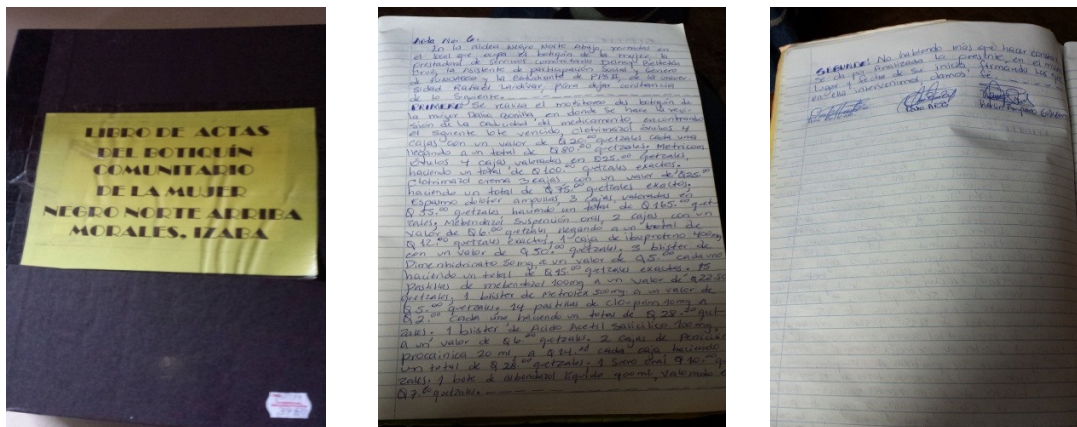 LIBRO DE ACTAS
DEL BOTIQUÍN
COMUNITARIO
DE LA MUJER
NEGRO NORTE ARRIBA
MORALES, IZABA
Acta No. 6.
En la Aldea Negro Norte Abajo, reunidos en
el local que ocupa el botiquin de la mujer, la
prestadora de servicios comunitario
la Asistente de participación Social y Genero
de y la Estudiante de de la univer
sidad Rafael Landivar, para dejar constancia
de lo siguiente.
PRIMERO: Se realiza el monitoreo del botiquin de
la mujer en donde se hace la revi
sion de la caducidad del medicamento, encontrando
el siguiente lote vencido, clotrimazol óvulos 4
cajas con un valor de Q20.00 quetzales cada una
llegando a un total de Q80.00 quetzales. Metricom
óvulos 4 cajas valorados en Q25.00 quetzales,
haciendo un total de Q100.00 quetzales exactos.
Clotrimazol crema 3 cajas con un valor de Q25.00
haciendo un total de Q75.00 quetzales exactos.
Espasmo ampollas 3 cajas, valoradas en
Q55.00 quetzales haciendo un total de Q165.00 quet-
zales. Mebendazol suspención oral, 2 cajas, con un
valor de Q6.00 quetzales, llegando a un total de
Q12.00 quetzales exactos. 1 caja de ibuprofeno 400mg
con un valor de Q50.00 quetzales. 3 blister de
Dimenhidrinato 50mg, a un valor de Q5.00 cada uno
haciendo un total de Q15.00 quetzales exactos. 15
Pastillas de mebendazol 100mg a un valor de Q22.50
quetzales. 1 blister de 500mg a un valor de
Q5.00 quetzales. 14 pastillas de 10mg a
Q2.00 cada una, haciendo un total de Q28.00 quet-
zales. 1 blister de Acido Acetil Salicilico 100mg,
a un valor de Q6.00 quetzales. 2 cajas de
procainica 20 ml, a Q14.00 cada caja haciendo
un total de Q28.00 quetzales. 1 Suero oral Q10.00
zales. 1 bote de albendazol liquido 400ml, valorado
Q7.00 quetzales.
SEGUNDO: No habiendo más que hacer constar
se da por finalizada la presente, en el mismo
lugar y fecha de su inicio, firmando los que
en ella intervenimos, damos fe.